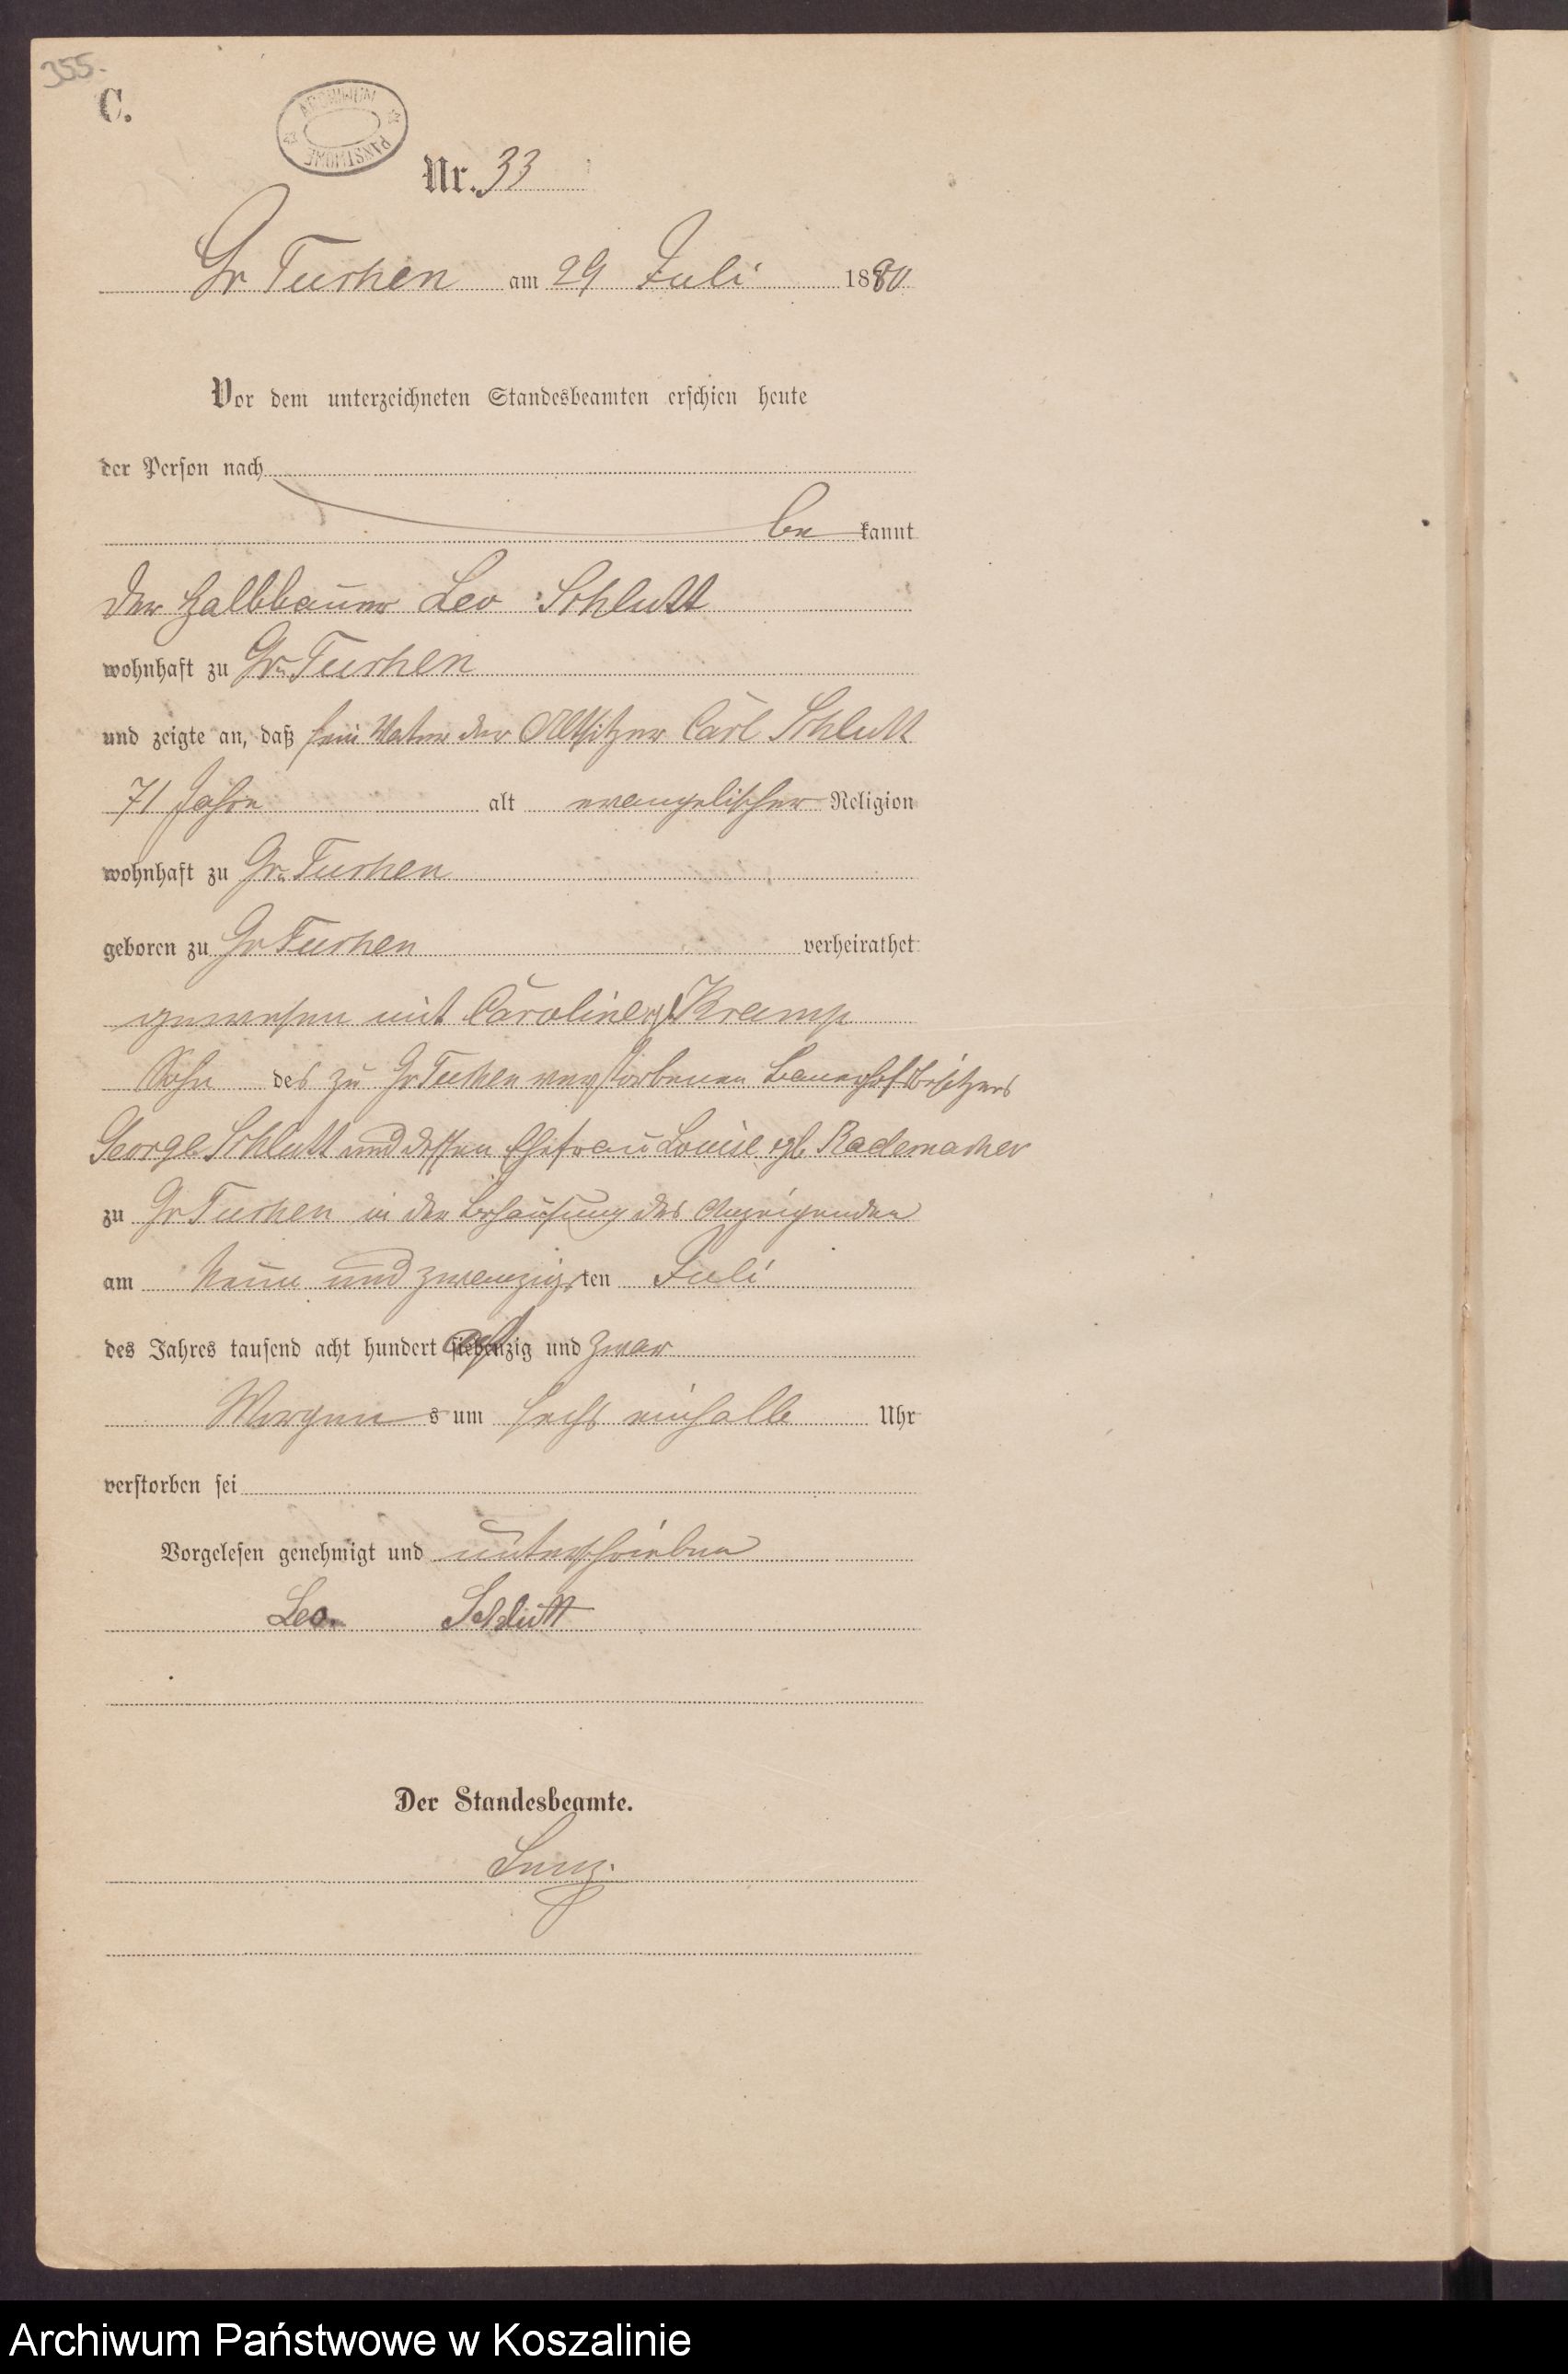 355.
C.
ARCHIWUM PAŃSTWOWE
Nr. 33
Gr Tuchen am 29 Juli 1880
Vor dem unterzeichneten Standesbeamten erschien heute
der Person nach
be kannt
der Halbbauer Leo Schlutt
wohnhaft zu Gr. Tuchen
und zeigte an, daß sein Vater der Altsitzer Carl Schlutt
71 Jahre alt evangelischer Religion
wohnhaft zu Gr. Tuchen
geboren zu Gr Tuchen verheirathet
gewesen mit Caroline Kramp
Sohn des zu Gr Tuchen verstorbenen Bauerhofsbesitzers
George Schlutt und dessen Ehefrau Louise Rademacher
zu Gr Tuchen in der Behausung des Anzeigenden
am Neun und zwanzigsten Juli
des Jahres tausend acht hundert achtzig und zwar
Morgens um sechs einhalb Uhr
verstorben sei
Vorgelesen genehmigt und unterschrieben
Leo Schlutt
Der Standesbeamte.
Archiwum Państwowe w Koszalinie